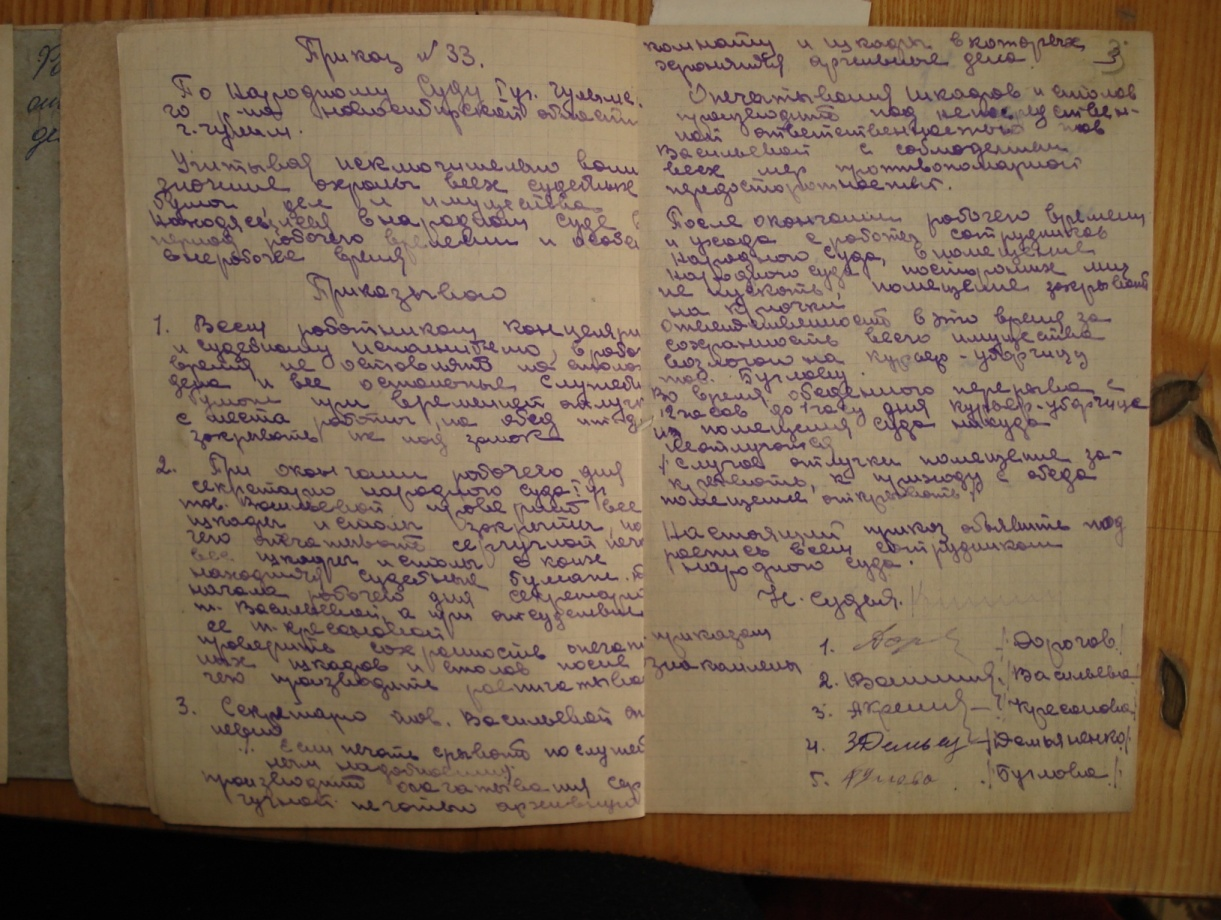 Приказ № 33.
По Народному Суду I уч. Чулымс
го р-на Новосибирской области
г. Чулым.
Учитывая исключительно
значение охраны всех судебных
бумаг дел и имущества
находящиеся в народном суде в
период робочего времени и особен
в неробочее время
Приказываю
1. Всем работникам канцеляри
и судебному исполнителю, в робо
время не оставлять на столах
дела и все остальные служебн
бумаги при временной отлучк
с места работы на обед
закрывать их под замок
2. При окончании робочего дня
секретарю народного суда I уч
тов. Васильевой, проверить все
шкафы и столы закрыты, по
чего опечатывать сургучной печ
все шкафы и столы в коих
находятся судебные бумаги.
начала робочего дня секретарю
т. Васильевой, а при отсутствии
ее т. Кресановой
проверить сохранность опечатан
ных шкафов и столов после
чего производить распечатыва
3. Секретарю тов. Васильевой
Если печать срывают по служеб
ным надобностям.
производить опечатывания сур
гучной печатью архивную
комнату и шкафы в которых 3
хронятся архивные дела.
Опечатывания шкафов и столов
производить под непосредствен-
ной ответственностью тов
Васильевой с соблюдением
всех мер противопожарной
предосторожности.
После окончании робочего времени
и ухода с работы сотрудников
Народного Суда, в помещение
Народного суда посторонних лиц
не пускать, помещение закрывать
на ключки,
Ответственность в это время за
сохранность всего имущества
возлогаю на курьер-уборчицу
тов. Буглову.
Во время обеденного перерыва с
12 часов до 1 часу дня курьер-уборчице
из помещения суда никуда
не отлучатся
/Случае отлучки помещение за-
крывать, к приходу с обеда
помещение открывать/
Настоящий приказ объявить под
роспись всем сотрудникам
народного суда.
Н. Судья.
приказом
знакомлены
1. /Дорогов/
2. /Васильева/
3. /Кресанова/
4. /Демьяненко/
5. /Буглова/